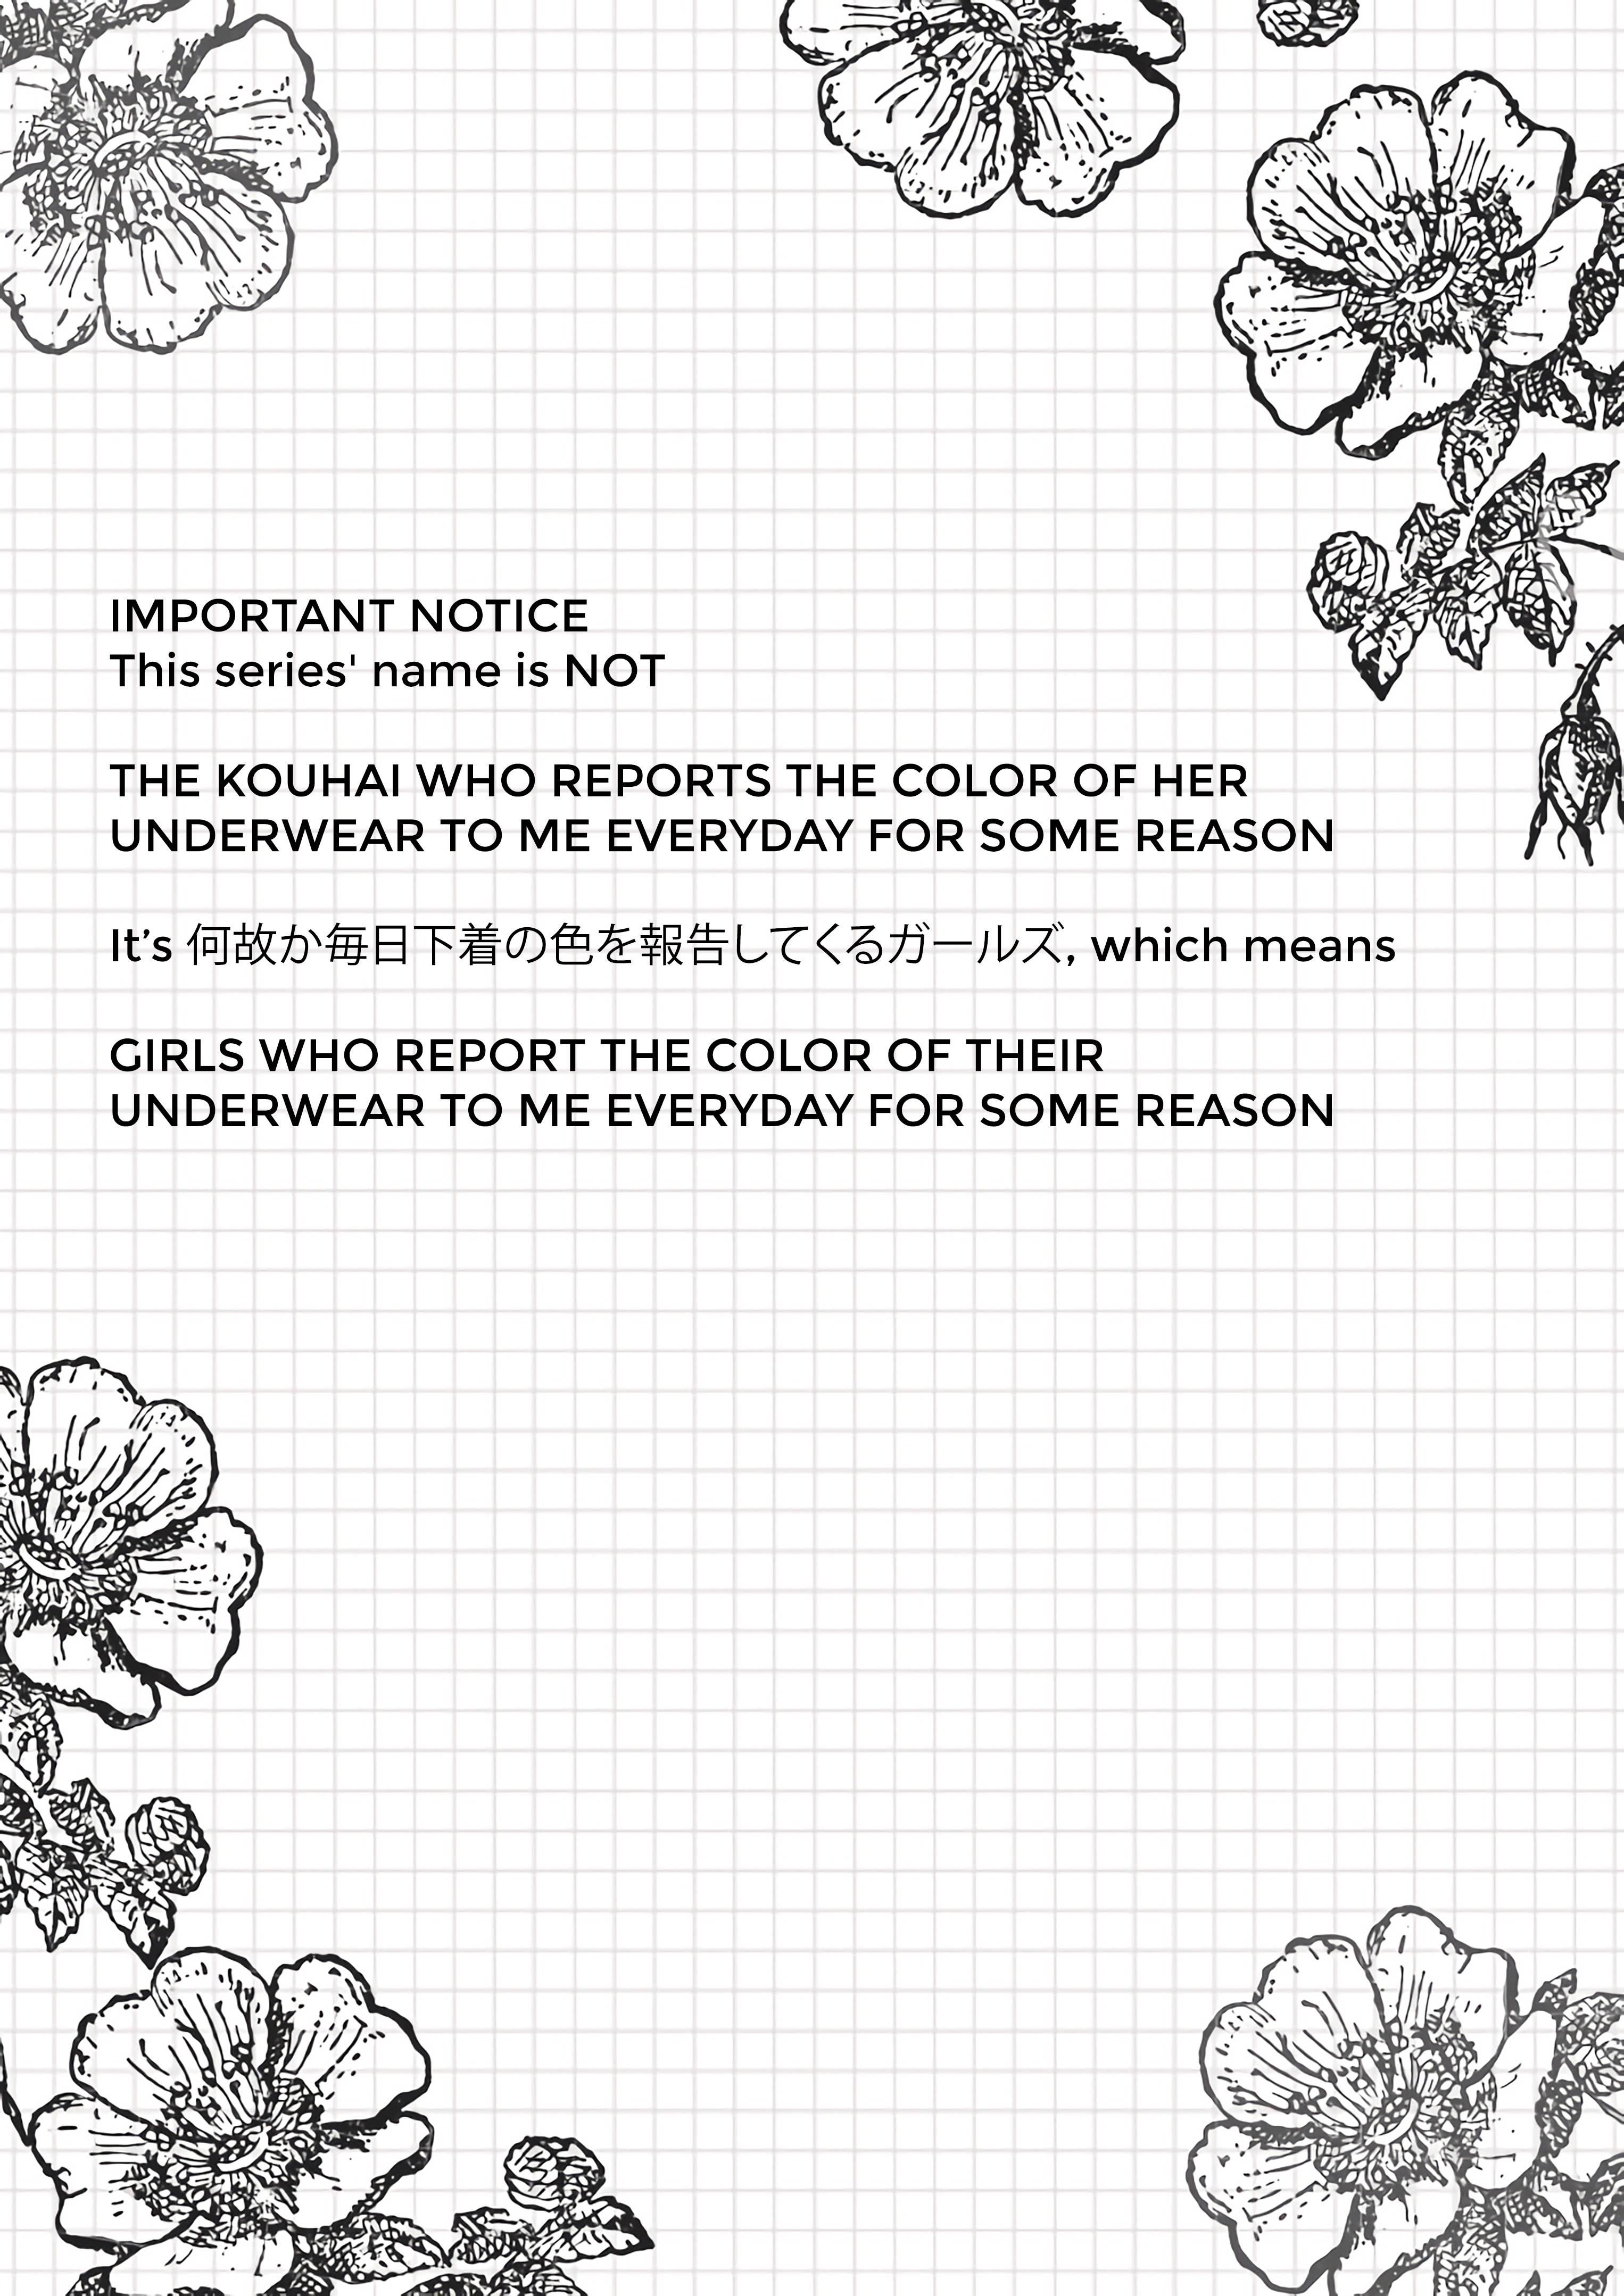 IMPORTANT NOTICE
This series' name is NOT
THE KOUHAI WHO REPORTS THE COLOR OF HER
UNDERWEAR TO ME EVERYDAY FOR SOME REASON
It’s 何故か毎日下着の色を報告してくるガールズ, which means
GIRLS WHO REPORT THE COLOR OF THEIR
UNDERWEAR TO ME EVERYDAY FOR SOME REASON